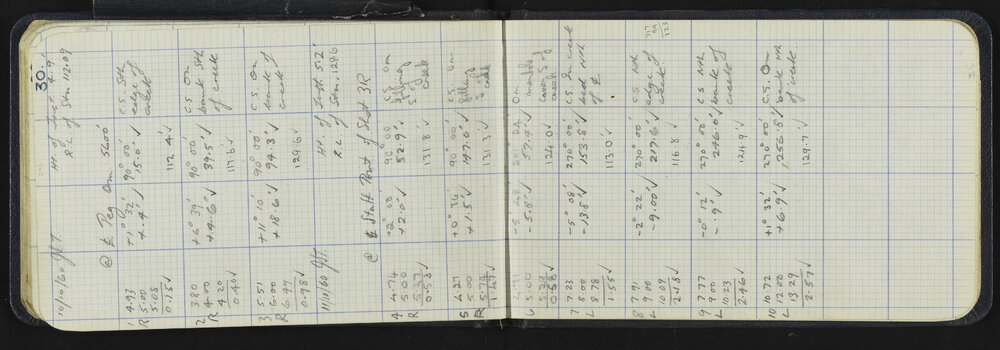 30.
10/10/60 GJT. Ht. of Inst 4.9
R.L of Stn. 112.09
@ ₵ Peg Om 5600'
1 4.93 +1° 32' 90° 00' C.S. Nth
R 5.00 +.4'✓ 15.0'✓ edge of
5.08 creek
0.15✓ 112.4'✓
2 3.80 +6° 39' 90° 00' C.S On
R 4.00 +4.6'✓ 39.5'✓ bank Sth
4.20 of creek
0.40✓ 117.6✓
3 5.51 +11° 10' 90° 00' C.S On
R 6.00 +18.6'✓ 94.3'✓ bank of
6.49 creek
0.98✓ 129.6✓
11/10/60 GJT. Ht. of Inst 5.2'
R.L of Stn. 129.6
@ ₵ Staff Point of Shot 3R
4 4.74 +2° 08' 90° 00' C.S On
R 5.00 +2.0'✓ 52.9'✓ falling
5.27 S of
0.53✓ 131.8'✓ creek
5 4.27 +0° 36' 90° 00' C.S. On
R 5.00 +1.5'✓ 147.0'✓ falling
5.74 S of
1.47✓ 131.3'✓ creek
6 4.71 -5° 48' 20° 24' On
5.00 -5.8'✓ 57.4'✓ manhole
5.29 cover S of
0.58✓ 124.0✓ creek
7 7.23 -5° 08' 270° 00' C.S. On creek
L 8.00 -13.8'✓ 153.8'✓ bed Nth
8.78 of ₵
1.55✓ 113.0'✓
8 7.91 -2° 22' 270° 00' C.S. Nth
L 9.00 -9.00'✓ 217.6'✓ edge of
10.09 creek
2.18✓ 116.8✓
9 7.77 -0° 12' 270° 00' C.S Nth
L 9.00 -.9'✓ 246.0'✓ bank of
10.23 creek
2.46✓ 124.9'✓
10 10.72 +1° 32' 270° 00' C.S. On
L 12.00 +6.9'✓ 256.8'✓ bank Nth
13.29 of creek
2.57✓ 129.7✓